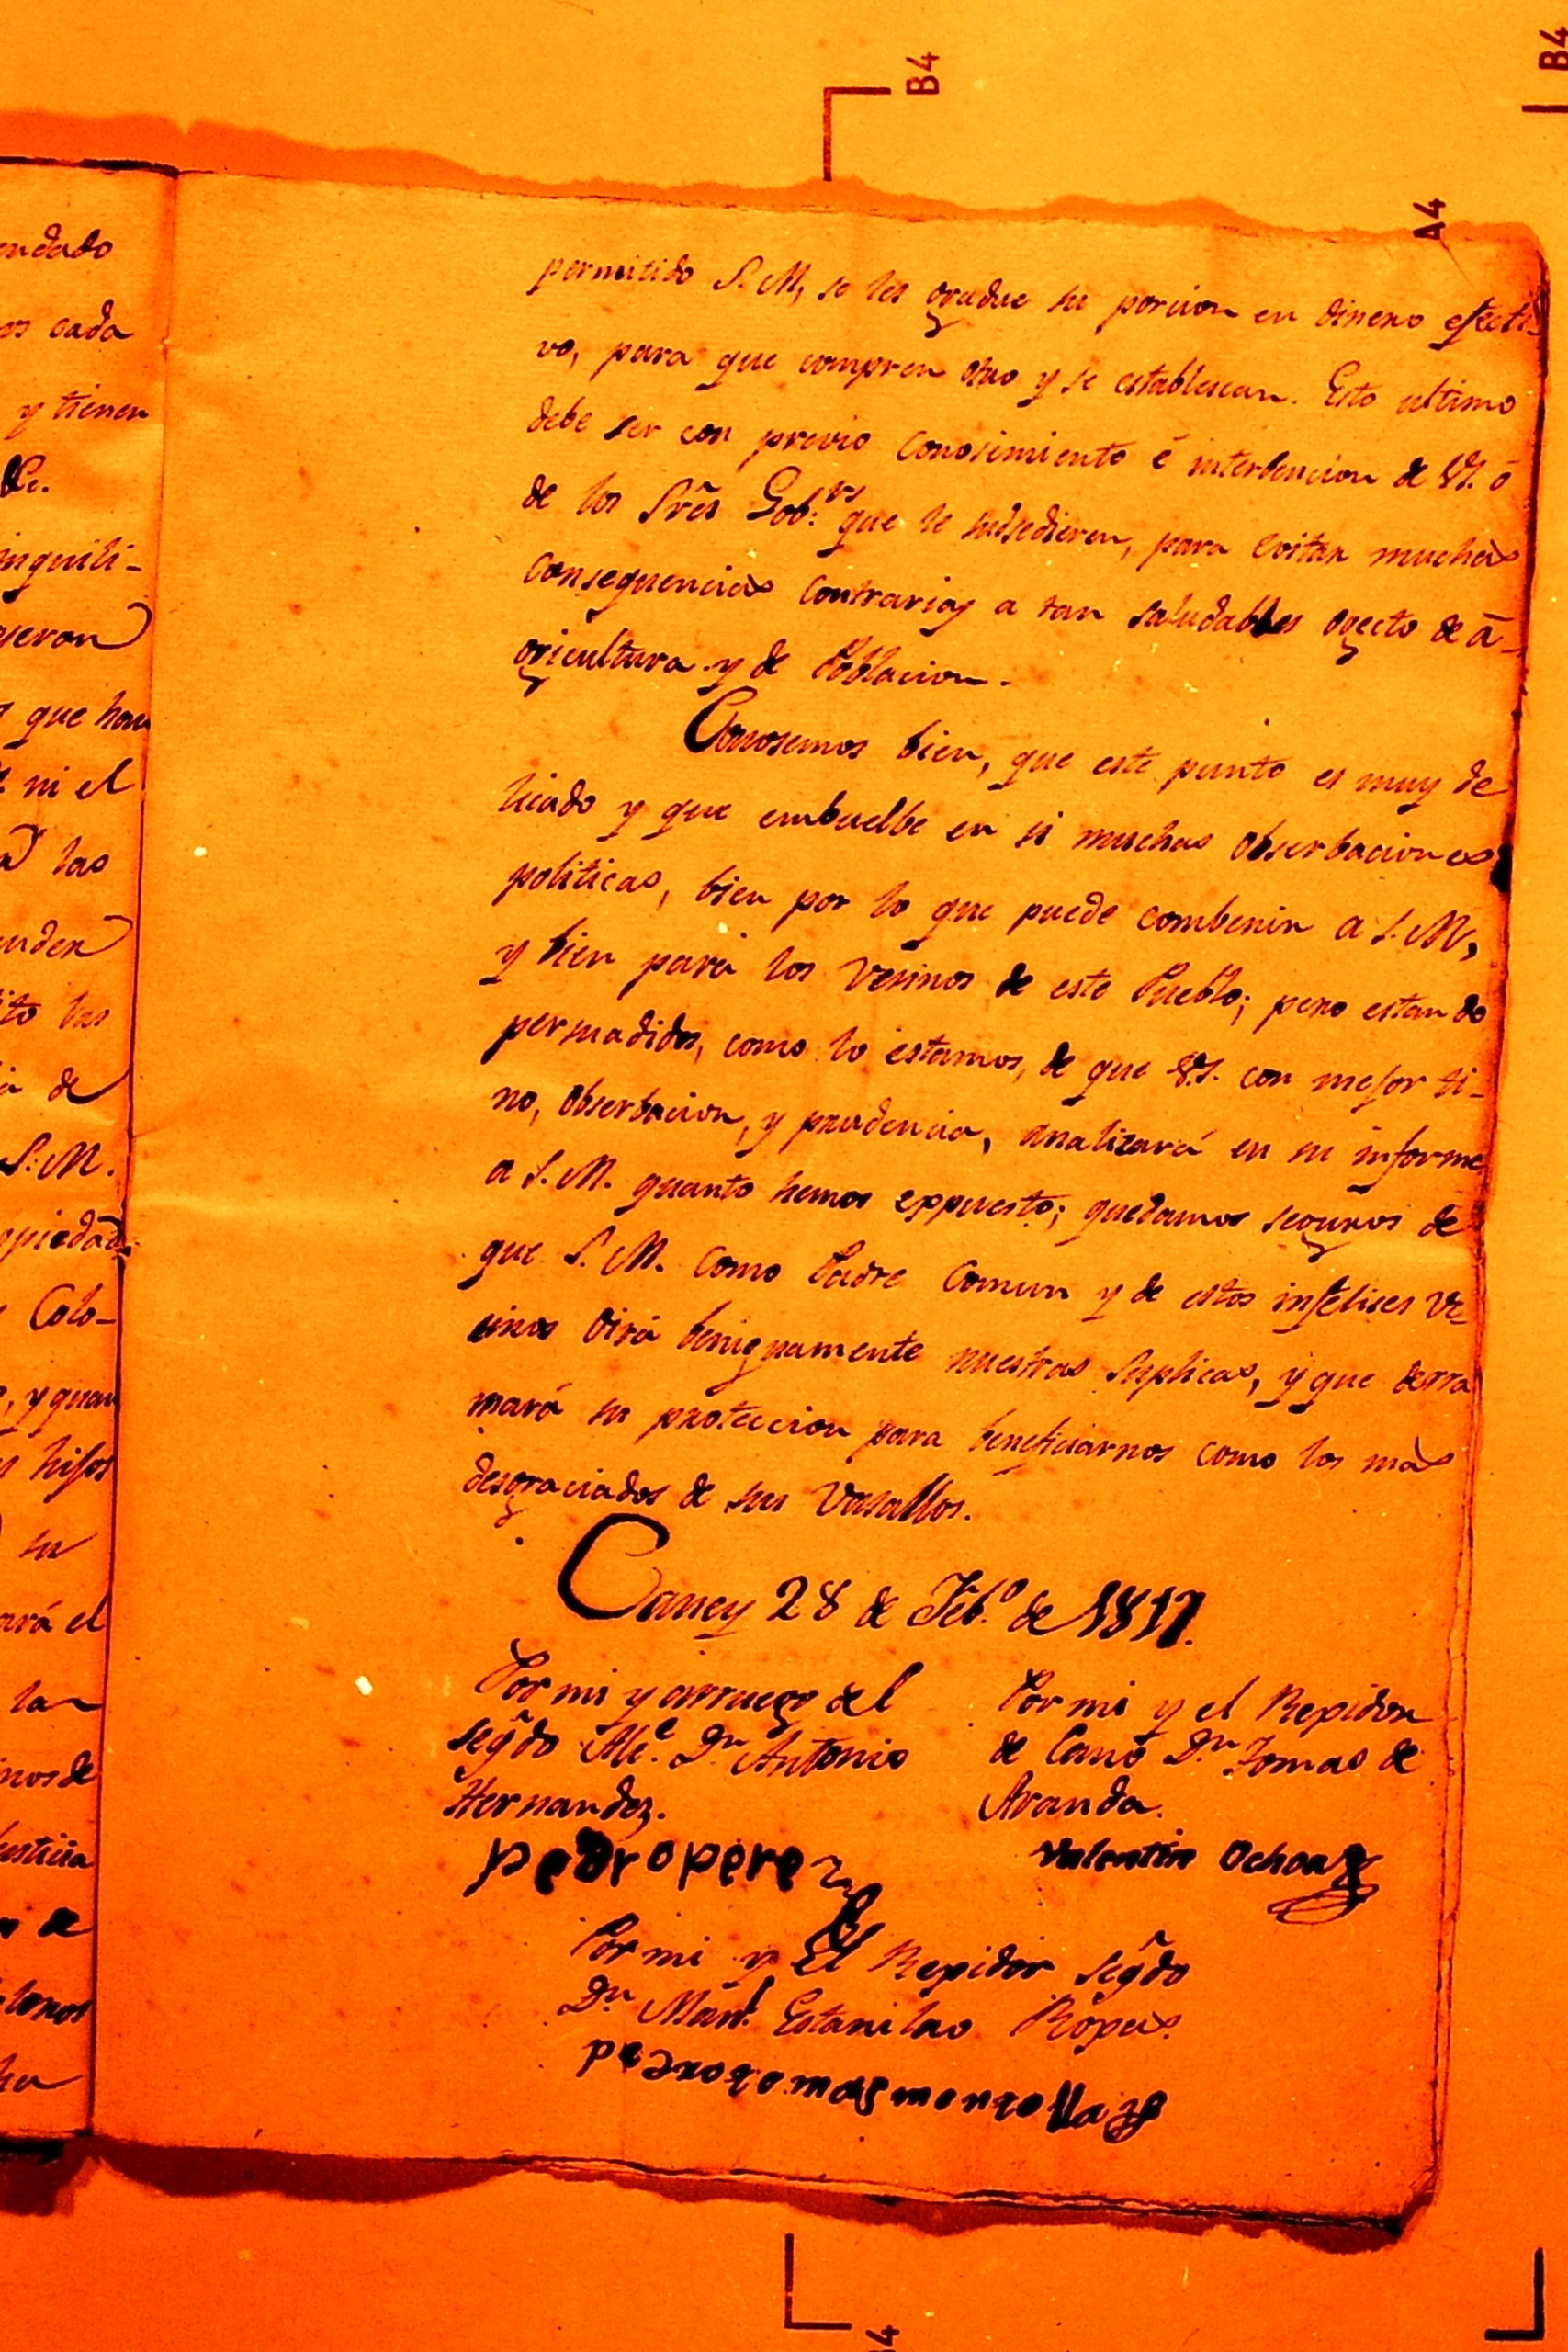 B4
B4
A4
endado
cada
y tienen
inquili-
jeron
que han
ni el
las
enden
to los
de
S.M.
opiedad
Colo-
y quan
hijos
su
ará el
la
nos de
Justicia
de
lonos
ha
permitido S. M, se les gradue su porcion en dinero efecti-
vo, para que compren otro y se establescan. Esto ultimo
debe ser con previo conosimiento é interbencion de VS. ó
de los Srẽs Gob.rs que le subsedieren, para evitar muchas
consequencias contrarias a tan saludables ogecto de ā-
gricultura y de Poblacion.
Conosemos bien, que este punto es muy de
licado y que embuelbe en si muchas obserbaciones
politicas, bien por lo que puede combenir a S. M,
y bien para los vesinos de este Pueblo; pero estando
persuadidos, como lo estamos, de que V.S. con mejor ti-
no, obserbacion, y prudencia, analizará en su informe
a S. M. quanto hemos exppuesto; quedamos seguros de
que S. M. como Padre comun y de estos infelises ve-
sinos oirá benignamente nuestras suplicas, y que derra
mará su proteccion para beneficiarnos como los mas
desgraciados de sus vasallos.
Caney 28 de Feb.o de 1817.
Por mi y arruego del
seg̃do Alc.e Dn Antonio
Hernandez.
pedro perez
Por mi y el Regidor
de Cano Dn Tomas de
Aranda.
Valentin Ochoa
Por mi y El Regidor seg̃do
Dn Man.l Estanilao Ropas.
pedro tomas montolla
B4